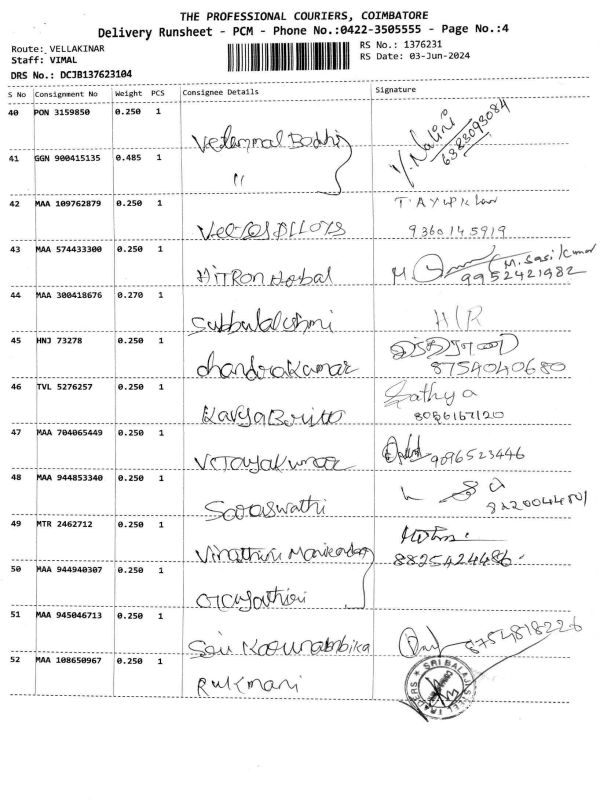 THE PROFESSIONAL COURIERS, COIMBATORE
Delivery Runsheet - PCM - Phone No.:0422-3505555 - Page No.:4
Route: VELLAKINAR
RS No.: 1376231
Staff: VIMAL
RS Date: 03-Jun-2024
DRS No.: DCJB137623104
S No Consignment No Weight PCS Consignee Details Signature
40 PON 3159850 0.250 1 Nalini 6383093084
41 GGN 900415135 0.485 1 "
42 MAA 109762879 0.250 1 9360145919
43 MAA 574433300 0.250 1 M. Sasikumar 9952421982
44 MAA 300418676 0.270 1 Subbulakshmi H/R
45 HNJ 73278 0.250 1 Chandrakumar 8754040680
46 TVL 5276257 0.250 1 Kavya Sathya 8056167120
47 MAA 704065449 0.250 1 Vijayakumar 9096523446
48 MAA 944853340 0.250 1 Saraswathi
49 MTR 2462712 0.250 1 8825424486
50 MAA 944940307 0.250 1 Gayathiri
51 MAA 945046713 0.250 1 Sri 8754818226
52 MAA 108650967 0.250 1 Rukmani
SRI BALAJI STEEL TRADERS